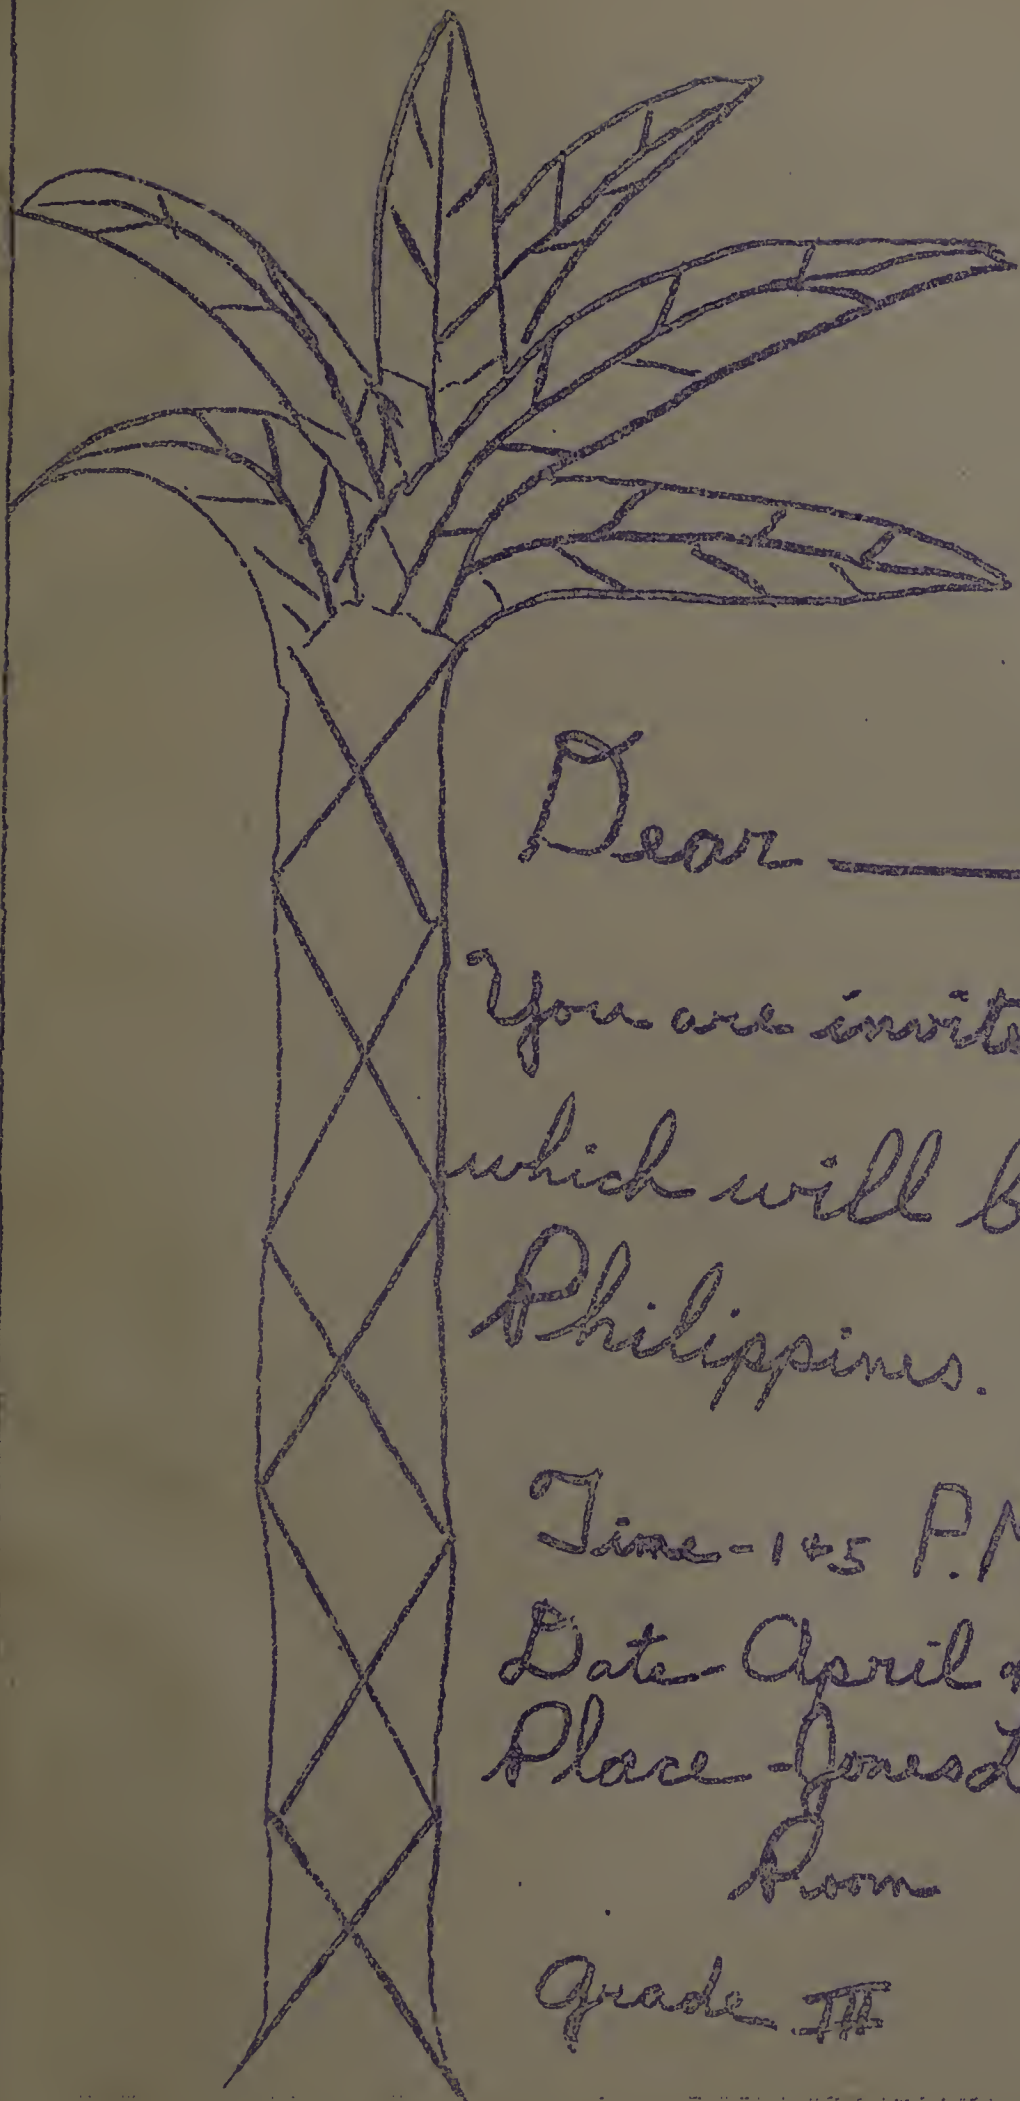 Dear
You are invite
which will b
Philippines.
Time - 145 P.M
Date - April
Place - Jones L
Room
Grade III